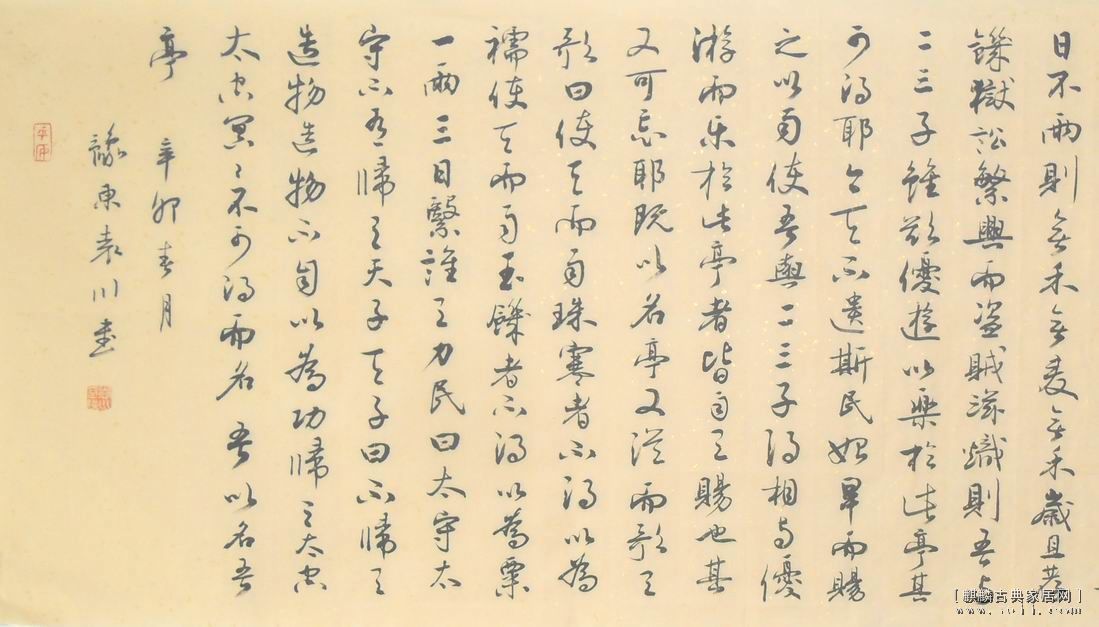 日不雨則無禾無麥無禾歲且薦
饑獄訟繁興而盜賊滋熾則吾與
二三子雖欲優遊以樂於此亭其
可得耶今天不遺斯民始旱而賜
之以雨使吾與二三子得相與優
游而樂於此亭者皆雨之賜也其
又可忘耶既以名亭又從而歌之
歌曰使天而雨珠寒者不得以為
襦使天而雨玉饑者不得以為粟
一雨三日繄誰之力民曰太守太
守不有歸之天子天子曰不歸之
造物造物不自以為功歸之太空
太空冥々不可得而名吾以名吾
亭
辛卯春月
豫東袁川書
[麒麟古典家居网]